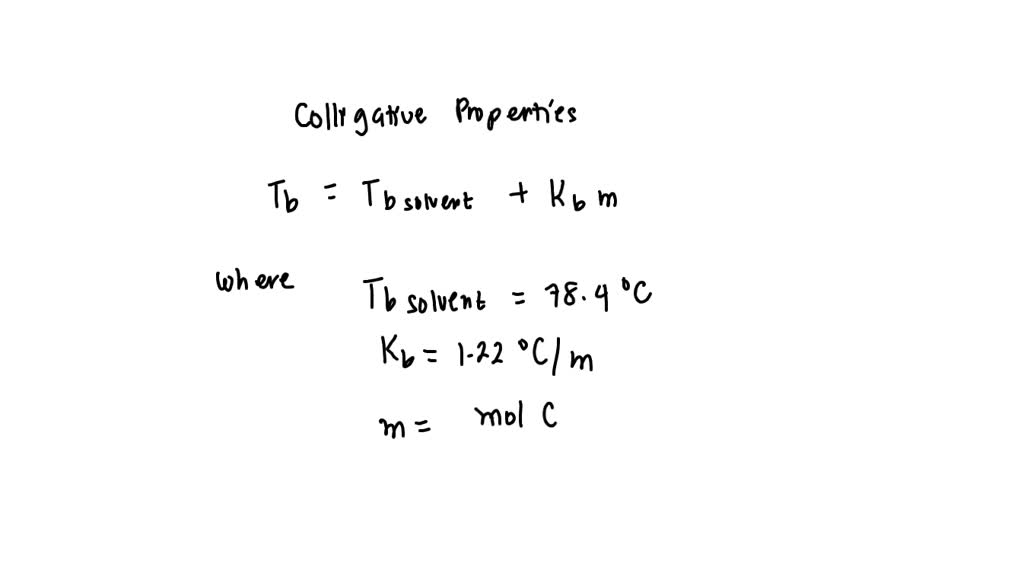 Colligative Properties
Tb = Tb solvent + Kb m
where Tb solvent = 78.4 °C
Kb = 1.22 °C/m
m = mol C